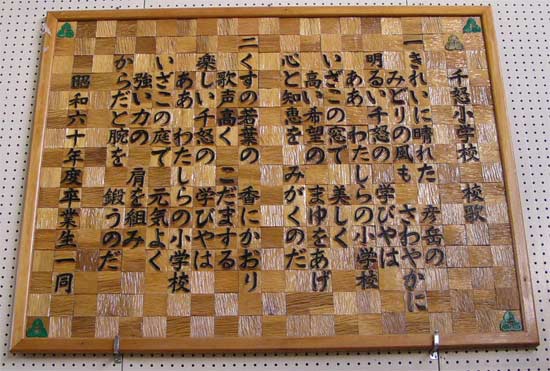 千怒小学校 校歌
一 きれいに晴れた 彦岳の
みどりの風も さわやかに
明るい千怒の 学びやは
ああ わたしらの小学校
いざこの窓で 美しく
高い希望の まゆをあげ
心と知恵を みがくのだ
二 くすの若葉の 香にかおり
歌声高く こだまする
楽しい千怒の 学びやは
ああ わたしらの小学校
いざこの庭で 元気よく
強い力の 肩を組み
からだと腕を 鍛うのだ
昭和六十年度卒業生一同